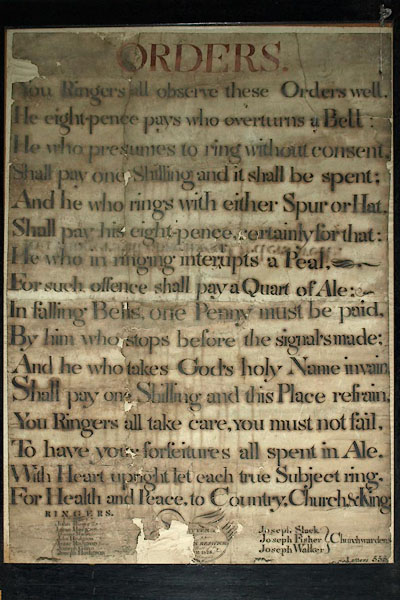 ORDERS.
You Ringers all observe these Orders well,
He eight-pence pays who overturns a Bell:
He who presumes to ring without consent,
Shall pay one Shilling and it shall be spent;
And he who rings with either Spur or Hat,
Shall pay his eight-pence, certainly for that:
He who in ringing interupts a Peal,
For such offence shall pay a Quart of Ale:
In falling Bells, one Penny must be paid,
By him who stops before the signal's made;
And he who takes God's holy Name in vain,
Shall pay one Shilling and this Place refrain,
You Ringers all take care, you must not fail,
To have your forfeitures all spent in Ale.
With Heart upright let each true Subject ring,
For Health and Peace, to Country, Church & King.
RINGERS.
Joseph Slack
Joseph Fisher Churchwardens
Joseph Walker